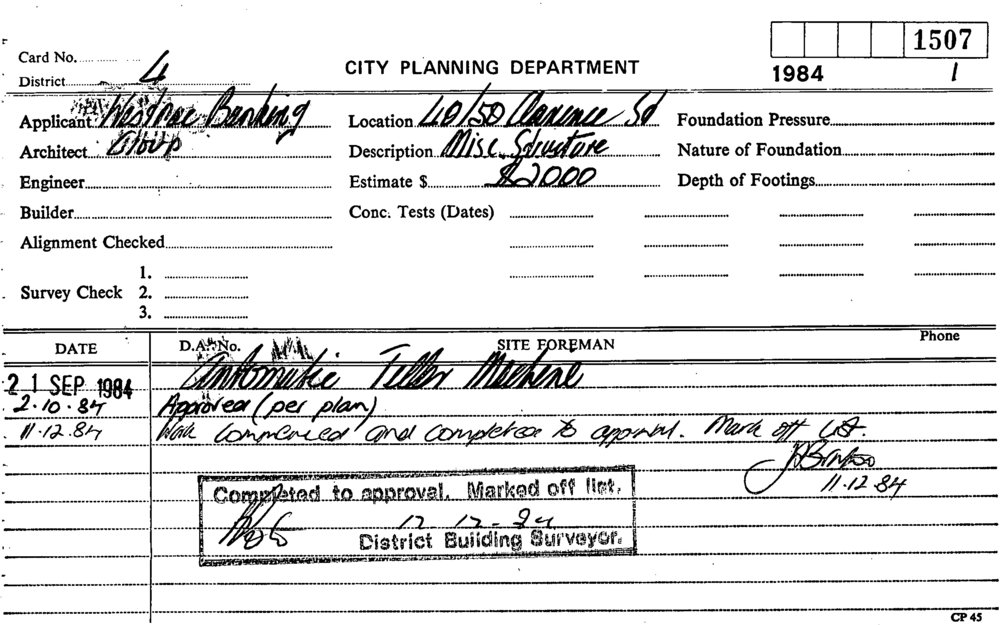 1507
Card No.
CITY PLANNING DEPARTMENT
1984 1
District 4
Applicant Westpac Banking Location 40/50 Clarence St Foundation Pressure
Architect Group Description Misc. Structure Nature of Foundation
Engineer Estimate $ $2000 Depth of Footings
Builder Conc. Tests (Dates)
Alignment Checked
1.
Survey Check 2.
3.
DATE D.A. No. SITE FOREMAN Phone
21 SEP 1984 Automatic Teller Machine
2.10.84 Approved (per plan)
11.12.84 Work commenced and completed to approval. Mark off list.
11.12.84
Completed to approval. Marked off list.
District Building Surveyor.
CP 45